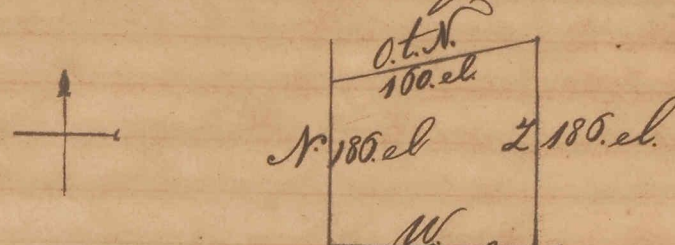 O.t.N.
160.el.
N. 186.el
Z 186.el.
W.